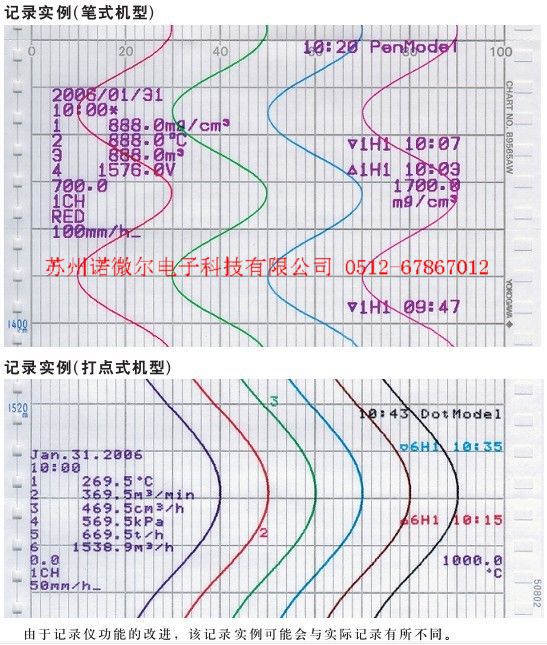 记录实例(笔式机型)
0 20 40 60 80 100
10:20 PenModel
2006/01/31
10:00*
1 888.0mg/cm³
2 888.0°C
3 888.0m³
4 1576.0V
700.0
1CH
RED
100mm/h_
▽1H1 10:07
△1H1 10:03
1700.0
mg/cm³
苏州诺微尔电子科技有限公司 0512-67867012
▽1H1 09:47
1400
cm
CHART NO. B9565AW
YOKOGAWA ◆
记录实例(打点式机型)
1520
m
3
10:43 DotModel
▽6H1 10:35
Jan.31.2006
10:00
1 269.5°C
2 369.5m³/min
3 469.5cm³/h
4 569.5kPa
5 669.5t/h
6 1538.9m³/h
0.0
1CH
50mm/h_
2
△6H1 10:15
1000.0
°C
50802
由于记录仪功能的改进，该记录实例可能会与实际记录有所不同。